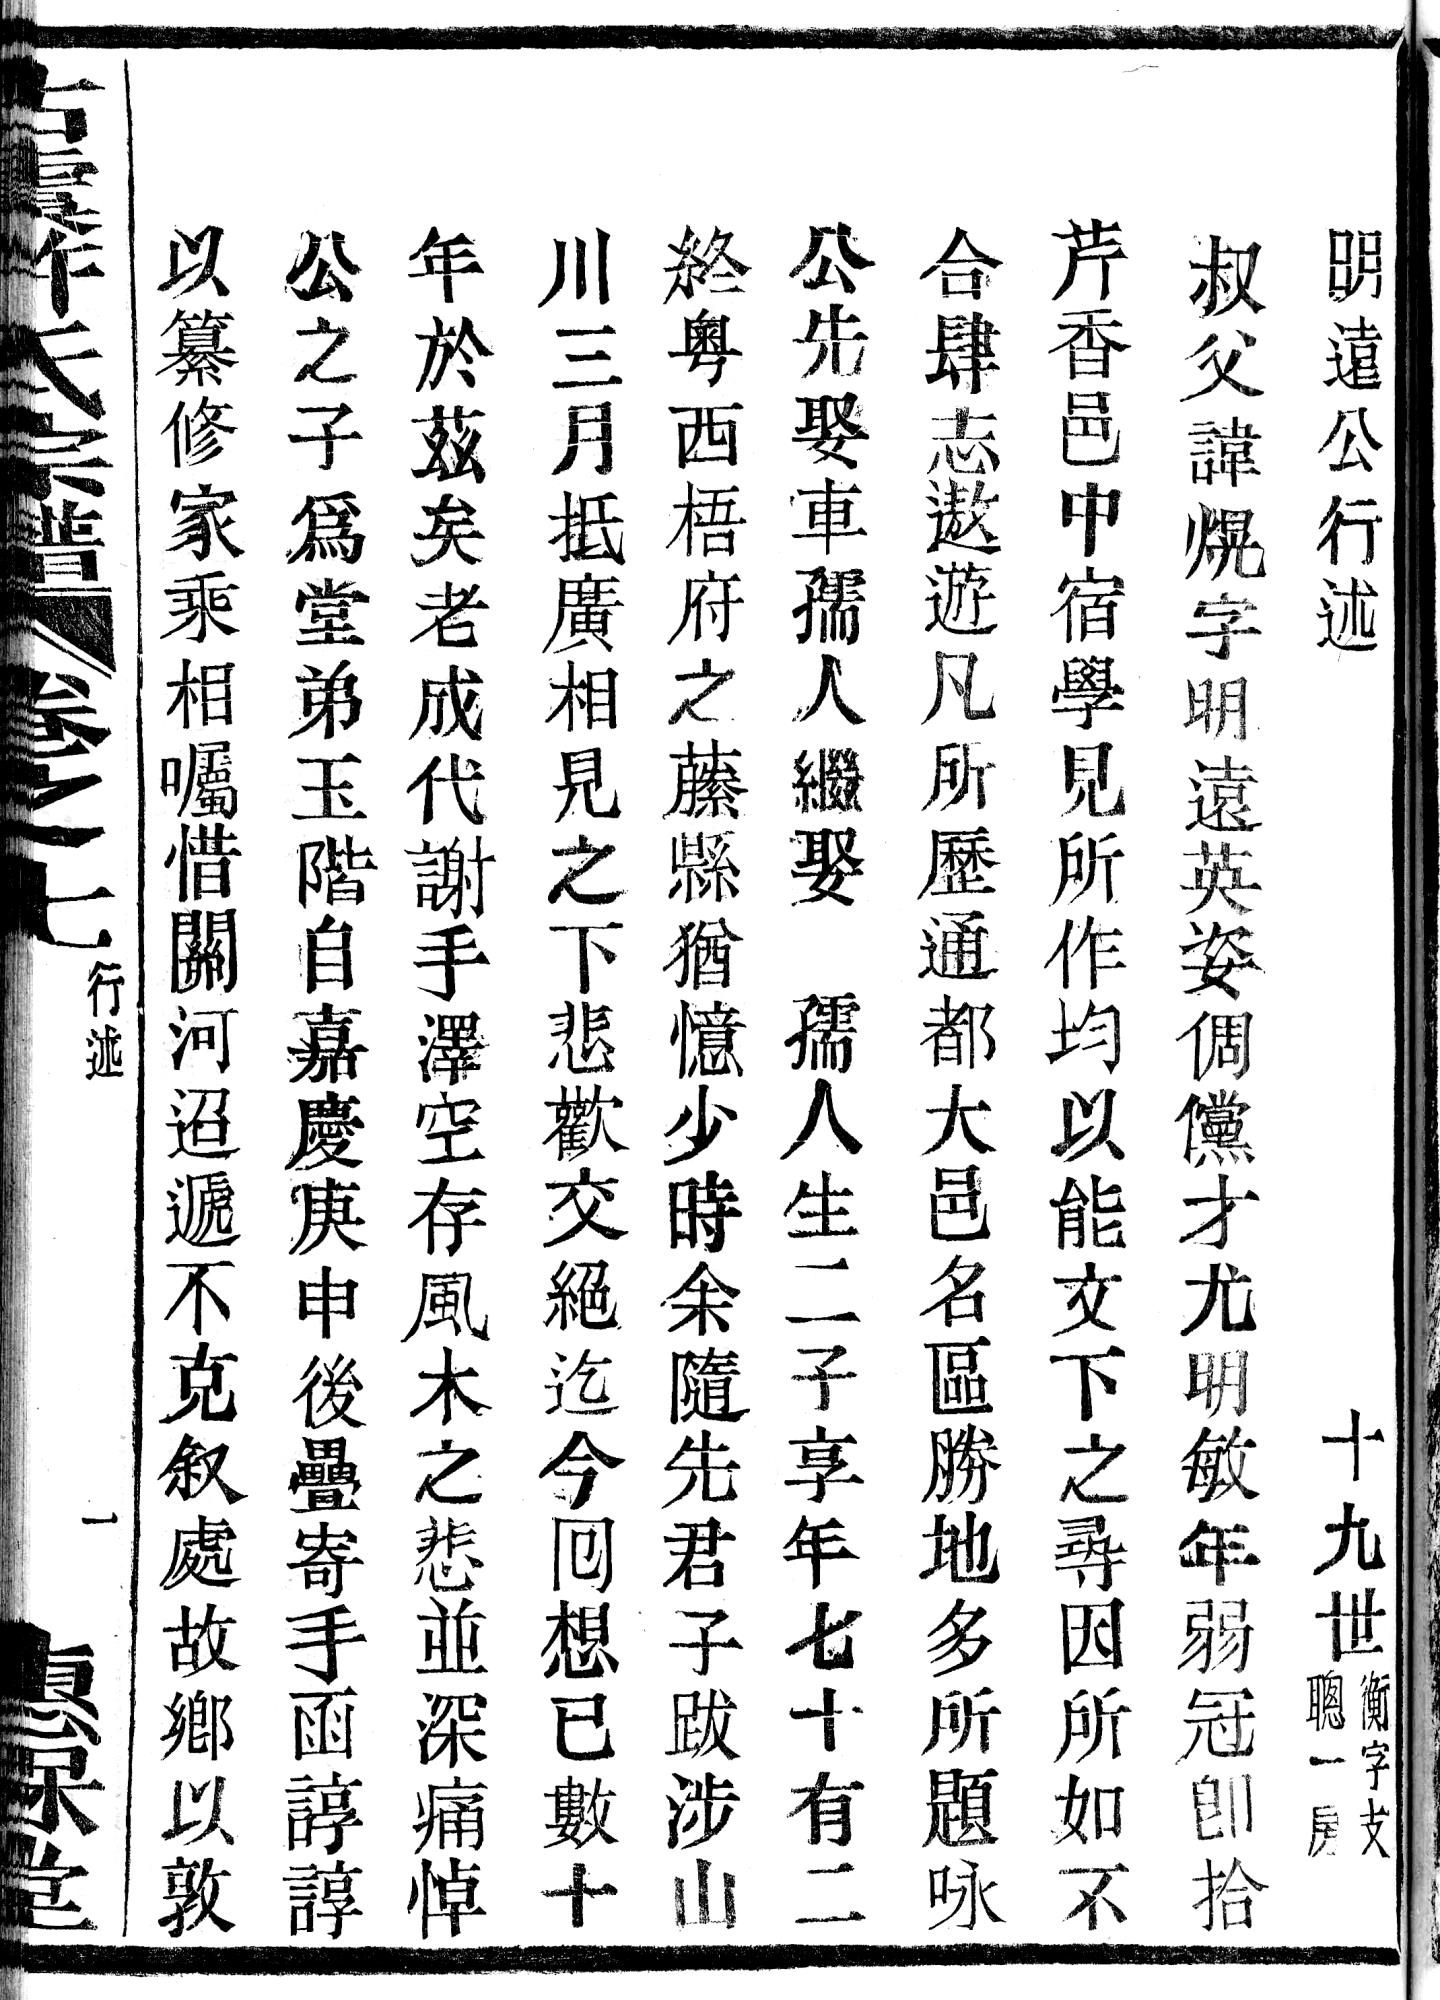 明遠公行述　十九世衡字支聰一房
叔父諱熀字明遠英姿倜儻才尤明敏年弱冠卽拾
芹香邑中宿學見所作均以能文下之尋因所如不
合肆志遨遊凡所歷通都大邑名區勝地多所題咏
公先娶車孺人繼娶　孺人生二子享年七十有二
終粵西梧府之藤縣猶憶少時余隨先君子跋涉山
川三月抵廣相見之下悲歡交絕迄今囘想已數十
年於茲矣老成代謝手澤空存風木之悲並深痛悼
公之子爲堂弟玉階自嘉慶庚申後疊寄手函諄諄
以纂修家乘相囑惜關河迢遞不克叙處故鄉以敦
氏宗譜　卷之七　行述　一　惠保堂